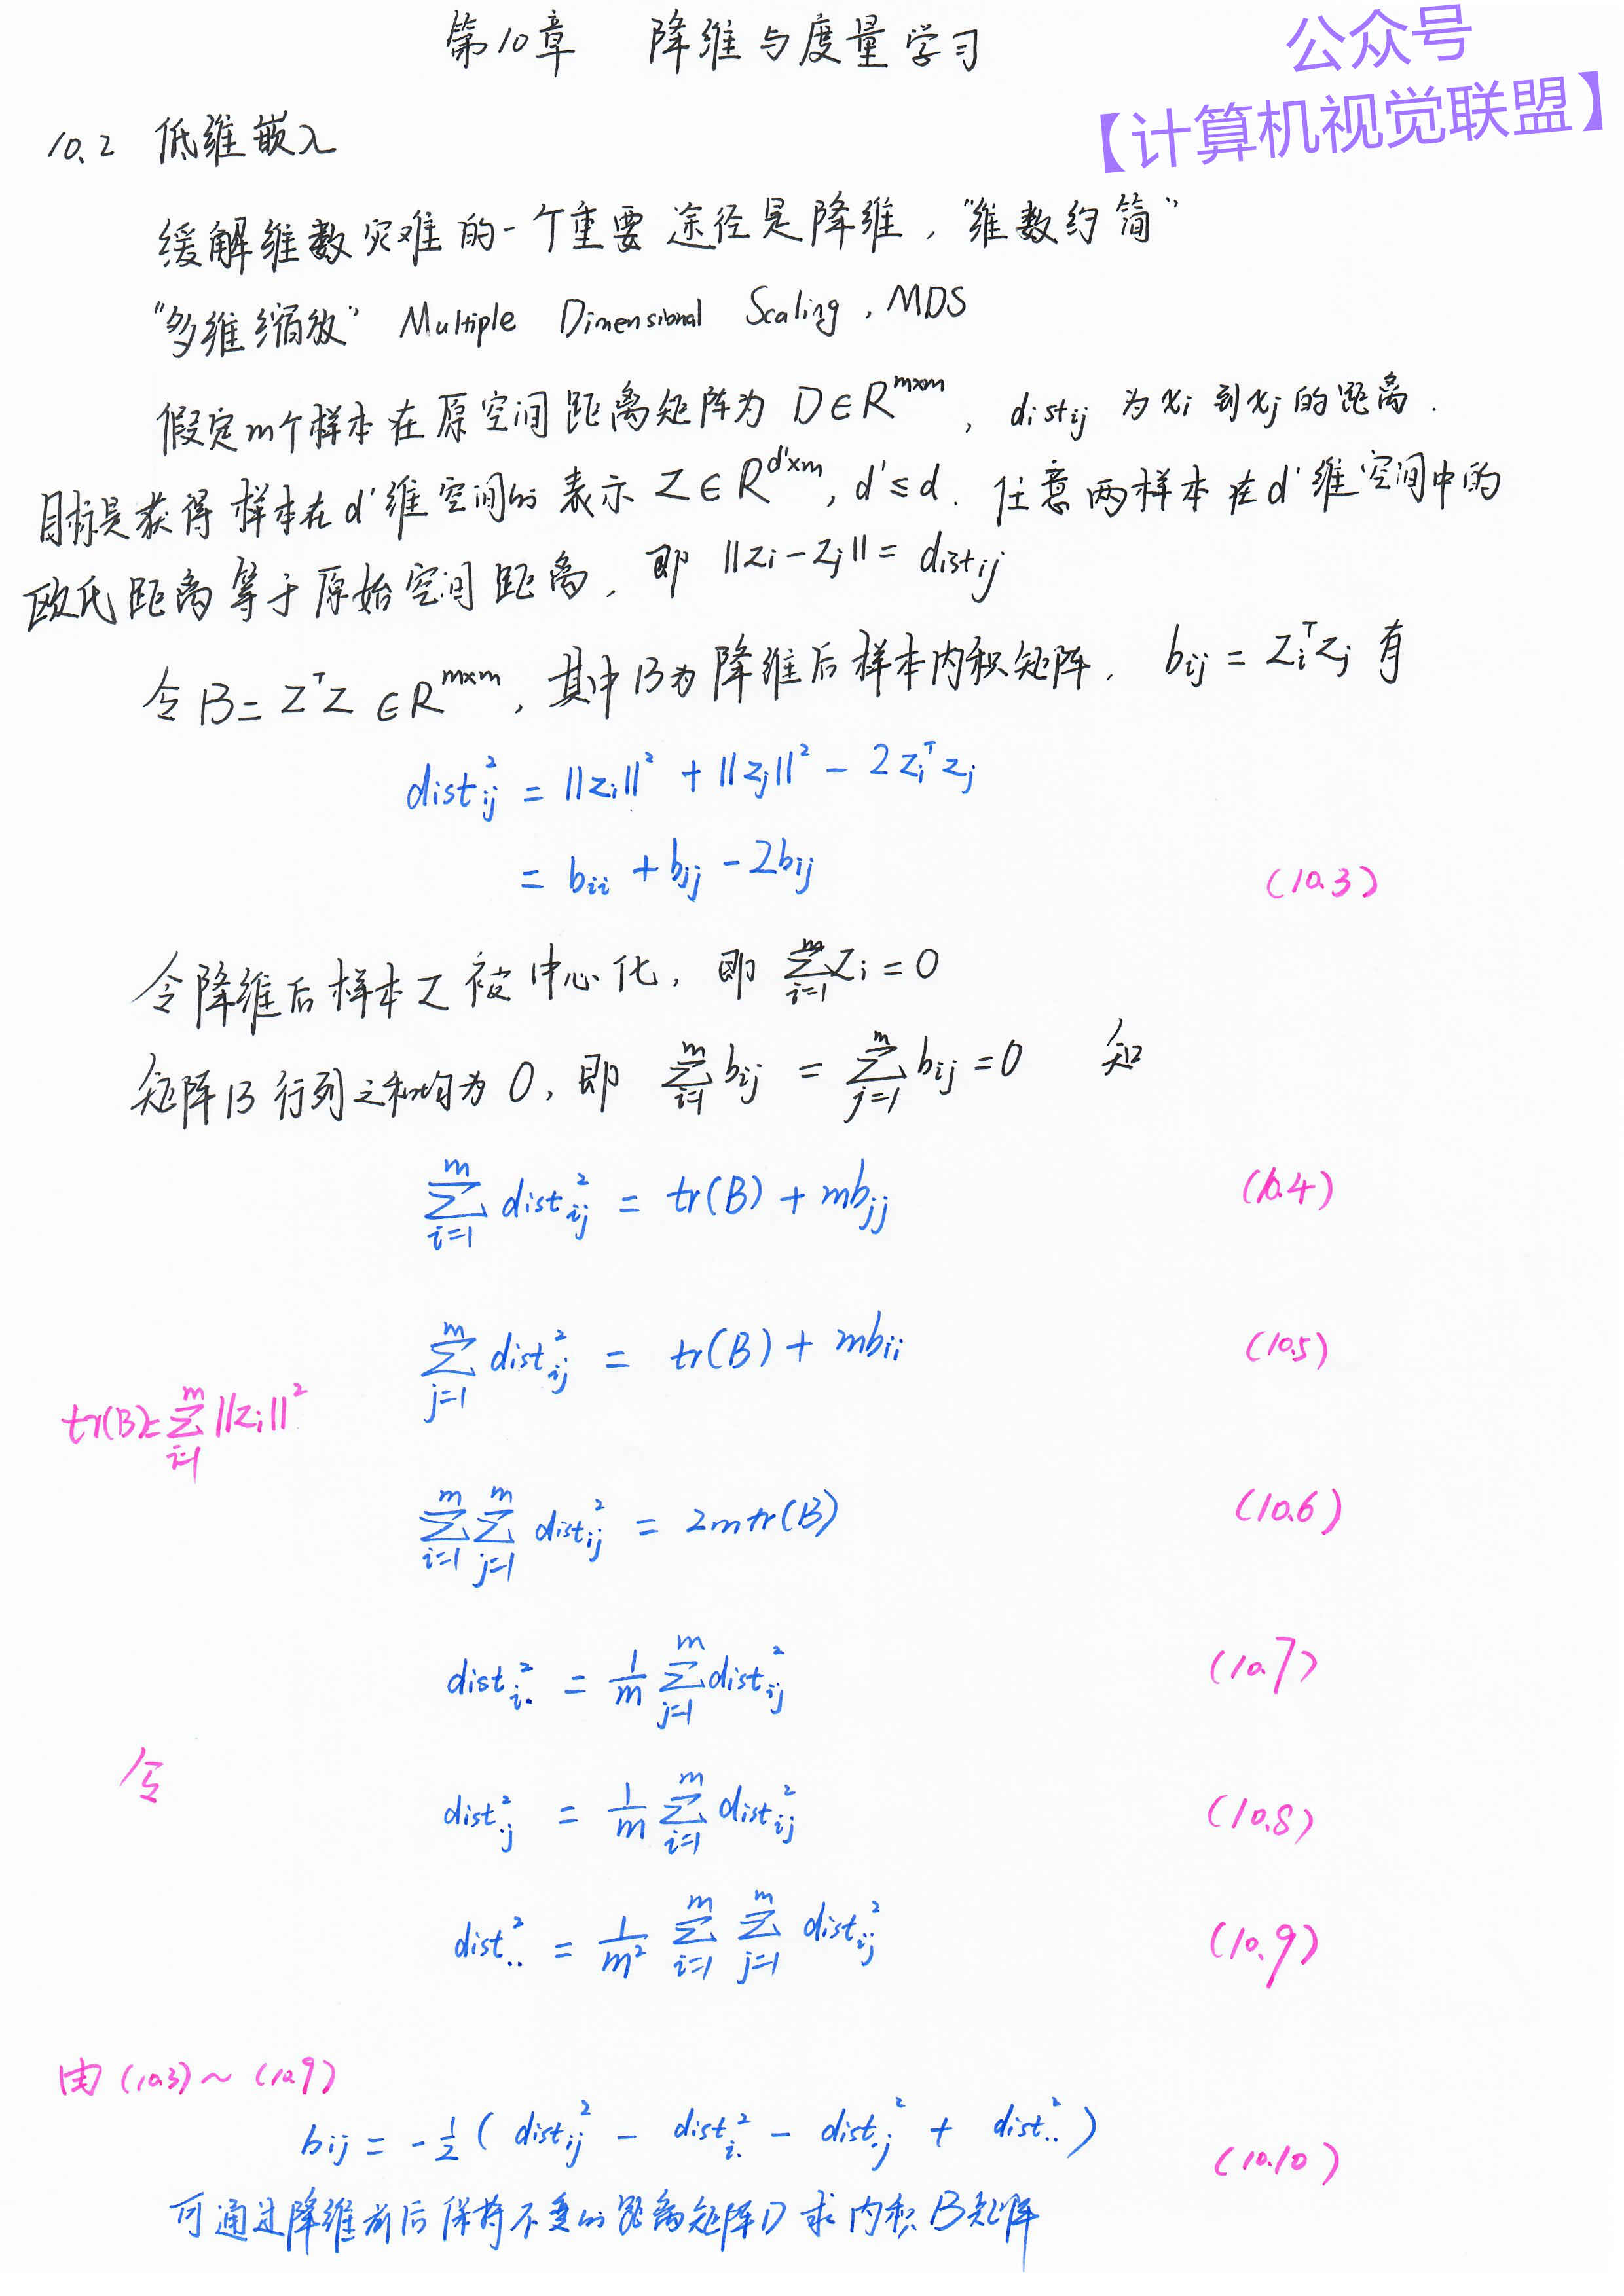 第10章 降维与度量学习
公众号
【计算机视觉联盟】
10.2 低维嵌入
缓解维数灾难的一个重要途径是降维，“维数约简”
“多维缩放” Multiple Dimensional Scaling，MDS
假定m个样本在原空间距离矩阵为 D∈R^{m×m}，dist_{ij} 为 x_i 到 x_j 的距离.
目标是获得样本在d'维空间的表示 Z∈R^{d'×m}, d'≤d. 任意两样本在d'维空间中的
欧氏距离等于原始空间距离，即 ||z_i-z_j||=dist_{ij}
令 B=Z^TZ∈R^{m×m}，其中B为降维后样本内积矩阵，b_{ij}=z_i^Tz_j 有
dist_{ij}^2 = ||z_i||^2 + ||z_j||^2 - 2z_i^Tz_j
= b_{ii} + b_{jj} - 2b_{ij} (10.3)
令降维后样本Z被中心化，即 ∑_{i=1}^m z_i=0
矩阵B行列之和均为0，即 ∑_{i=1}^m b_{ij} = ∑_{j=1}^m b_{ij}=0 知
∑_{i=1}^m dist_{ij}^2 = tr(B) + mb_{jj} (10.4)
∑_{j=1}^m dist_{ij}^2 = tr(B) + mb_{ii} (10.5)
tr(B)=∑_{i=1}^m ||z_i||^2
∑_{i=1}^m ∑_{j=1}^m dist_{ij}^2 = 2m tr(B) (10.6)
dist_{i.}^2 = \frac{1}{m} ∑_{j=1}^m dist_{ij}^2 (10.7)
令
dist_{.j}^2 = \frac{1}{m} ∑_{i=1}^m dist_{ij}^2 (10.8)
dist_{..}^2 = \frac{1}{m^2} ∑_{i=1}^m ∑_{j=1}^m dist_{ij}^2 (10.9)
由 (10.3)～(10.9)
b_{ij} = -\frac{1}{2}(dist_{ij}^2 - dist_{i.}^2 - dist_{.j}^2 + dist_{..}^2) (10.10)
可通过降维前后保持不变的距离矩阵D求内积B矩阵